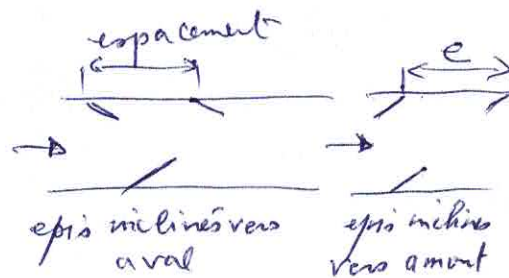 espacement
e
epis inclinés vers
aval
epis inclines
vers amont